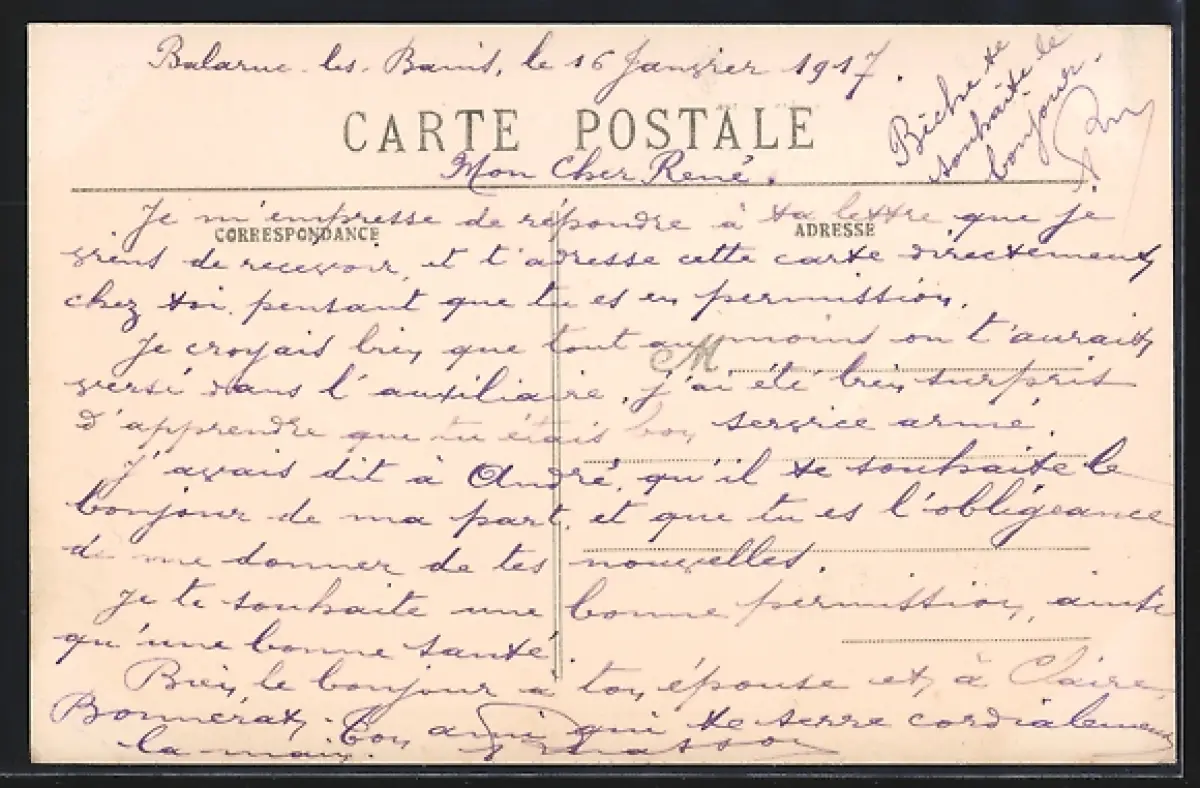 Balaruc-les-Bains, le 16 Janvier 1917.
Biche te
souhaite le
bonjour.
CARTE POSTALE
Mon Cher René.
Je m'empresse de répondre à ta lettre que je
CORRESPONDANCE
ADRESSE
viens de recevoir, et t'adresse cette carte directement
chez toi, pensant que tu es en permission.
Je croyais bien que tout au moins on t'aurait
M
versé dans l'auxiliaire, j'ai été bien surpris
d'apprendre que tu étais bon service armé.
J'avais dit à André, qu'il te souhaite le
bonjour de ma part, et que tu es l'obligeance
de me donner de tes nouvelles.
Je te souhaite une bonne permission, ainsi
qu'une bonne santé.
Bien le bonjour à ton épouse et à Claire
Bonnérat. Ton ami qui te serre cordialement
la main.